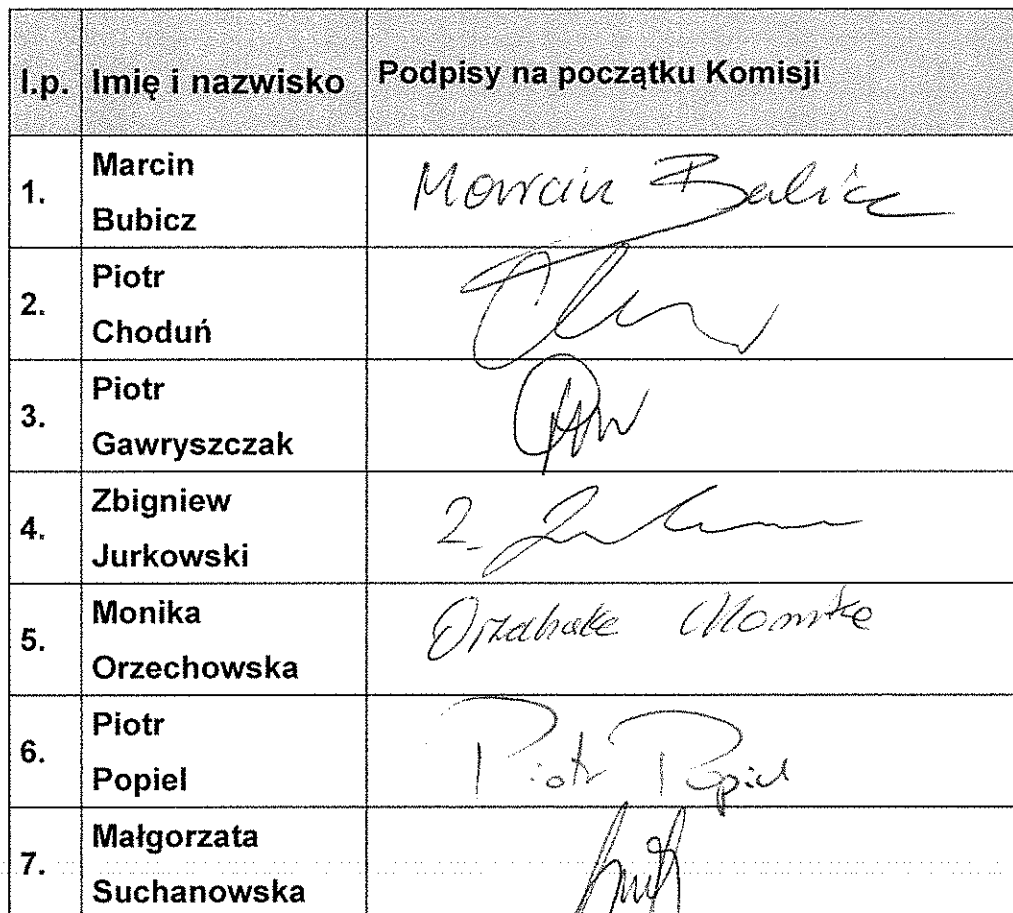 l.p. Imię i nazwisko Podpisy na początku Komisji
1. Marcin Bubicz Marcin
2. Piotr Choduń
3. Piotr Gawryszczak
4. Zbigniew Jurkowski
5. Monika Orzechowska
6. Piotr Popiel Piotr Popiel
7. Małgorzata Suchanowska